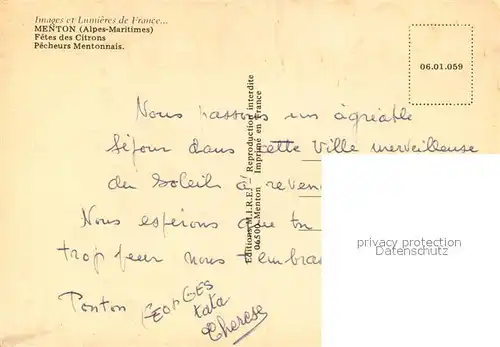 Images et Lumières de France...
MENTON (Alpes-Maritimes)
Fêtes des Citrons
Pêcheurs Mentonnais.
06.01.059
Editions M.I.R.E. - Reproduction interdite
06500 Menton Imprimé en France
Nous passons un agréable
séjour dans cette ville merveilleuse
du soleil à reven
Nous espérons que tu
trop peur nous t'embras
Tonton GEORGES
tata
Therese
privacy protection
Datenschutz